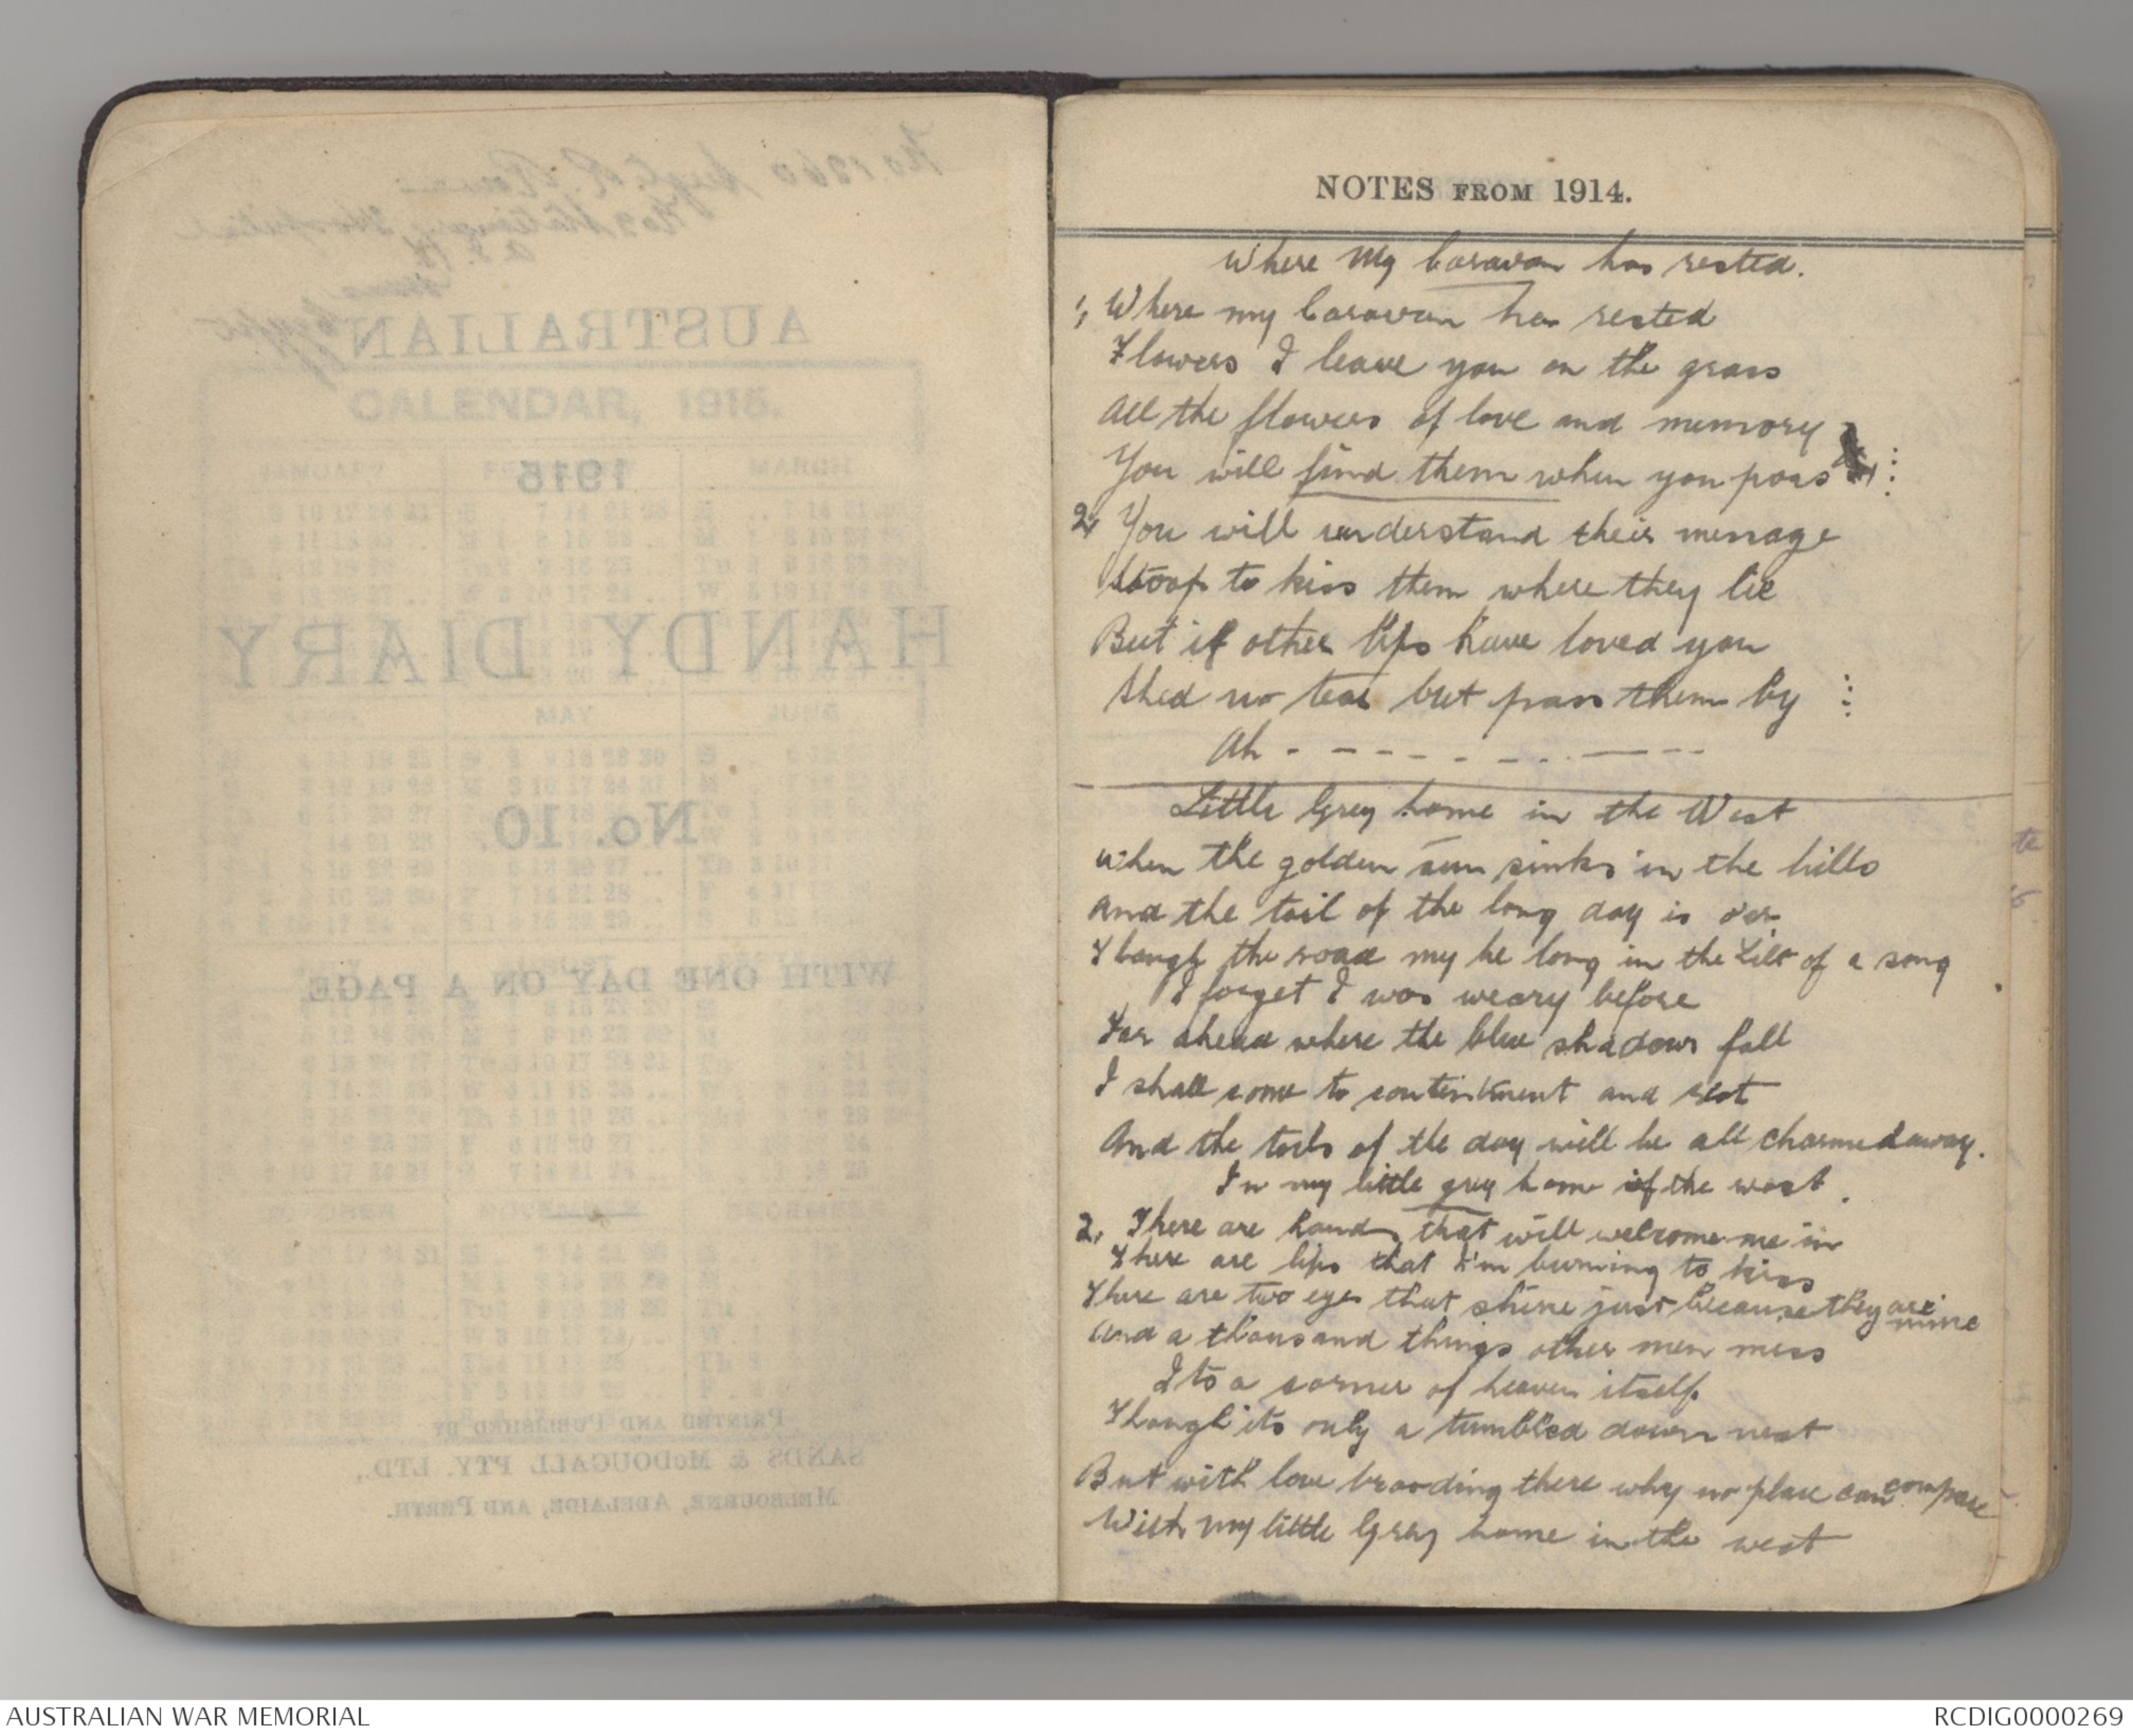 NOTES FROM 1914.
Where My Caravan has rested.
1, Where my Caravan has rested
Flowers I leave you on the grass
All the flowers of love and memory
You will find them when you pass
2, You will understand their message
Stoop to kiss them where they lie
But if other lips have loved you
Shed no tear but pass them by
Ah - - - - - - - - - -
Little Grey home in the West
When the golden sun sinks in the hills
And the toil of the long day is o'er
Though the road my be long in the Lilt of a song
I forget I was weary before
Far ahead where the blue shadows fall
I shall come to contentment and rest
And the toils of the day will be all charmed away.
In my little grey home of the west.
2, There are hands that will welcome me in
There are lips that I'm burning to kiss
There are two eyes that shine just because they are mine
And a thousand things other men miss
Its a corner of heaven itself
Though its only a tumbled down nest
But with love brooding there why no place can compare
With my little Grey home in the west
AUSTRALIAN
CALENDAR, 1915.
1915
HANDY DIARY
No. 10.
WITH ONE DAY ON A PAGE
PRINTED AND PUBLISHED BY
SANDS & McDOUGALL PTY. LTD.,
MELBOURNE, ADELAIDE, AND PERTH.
AUSTRALIAN WAR MEMORIAL
RCDIG0000269